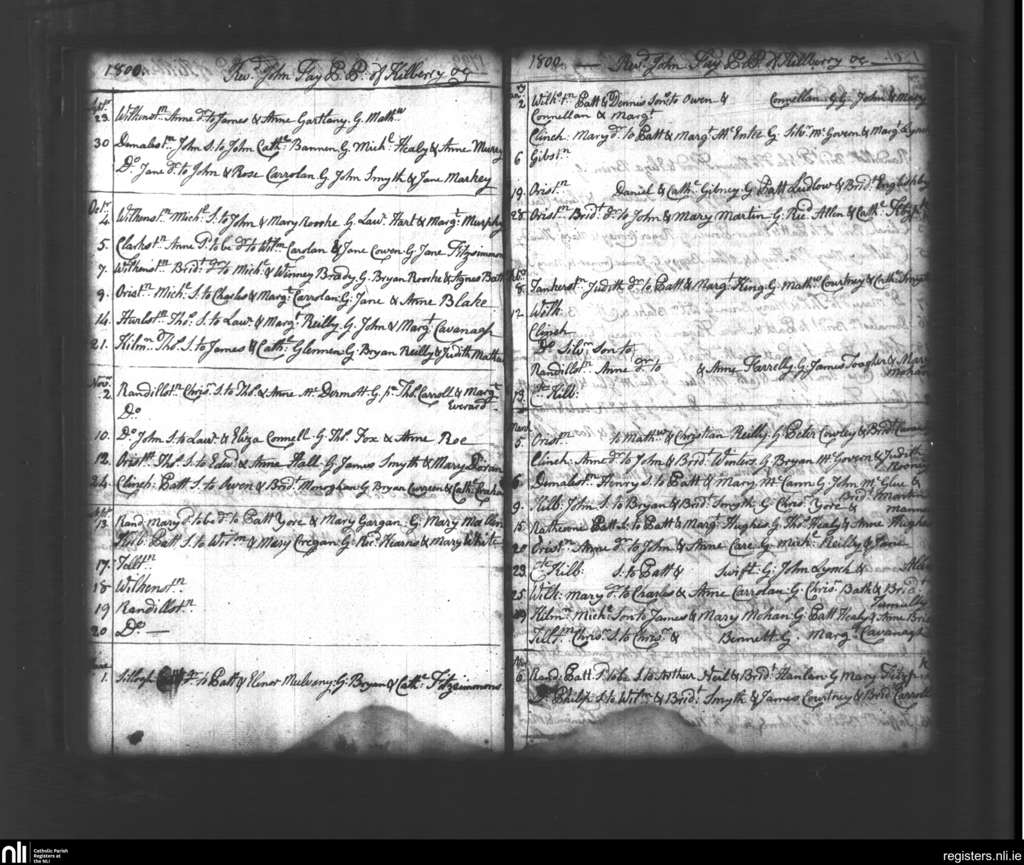 1800. Revd. John Fay P.P. of Kilberry &c
23. Wilkenstn. Anne Dr. to James & Anne Gartlany. G. Mathw
30 Demalestn. John S. to John Cathe. Bannen G. Michl. Healy & Anne
Do. Jane Dr. to John & Rose Carrolan G. John Smyth & Jane Markey
Octr.
4. Wilkenstn. Michl. S. to John & Mary Rooke G. Lawr. Hart & Margt. Murphy
5. Clarkstn. Anne P. to be Dr. to Wilm. Carolan & Jane Cowen G. Jane Fitzsimmon
7. Wilkinstn. Bridt. Dr. to Michl. & Winney Brady G. Bryan Rooke & Agnes Bath
9. Oristn. Michl. S. to Charles & Margt. Carrolan. G. Jane & Anne Blake
14. Harlostn. Thos. S. to Lawr. & Margt. Reilly. G. John & Margt. Cavanagh
21. Kilmn. Thos. S. to James & Cathe. Glennen G. Bryan Reilly & Judith
Novr.
2. Randillstn. Chrisr. S. to Thos. & Anne Mc. Dermott G. Thos. Carroll & Margt.
Do. Everard
10. Do. John S. to Lawr. & Eliza Connell. G. Thos. Fox & Anne Roe
12. Oristn. Thos. S. to Edwd. & Anne Hall G. James Smyth & Mary Doran
24. Clinch. Patt S. to Owen & Bridt. Monoghan G. Bryan & Cathe.
13. Rand. Mary P. to be Dr. to Patt Yore & Mary Gargan. G. Mary
Kilb. Patt S. to Wilm. & Mary Cregan. G. Ric. Kearns & Mary White
17. Tellsn.
18 Wilkenstn.
19 Randillstn.
20 Do.
1. Dr. to Patt & Elinor Mulveny G. Bryan & Cathe. Fitzsimmons
1800. Revd. John Fay P.P. of Kilberry &c
2 Wilkstn. Patt & Dennis Sons to Owen & Connellan G.G. John & Mary
Connellan & Margt.
Clinch Mary Dr. to Patt & Margt. Mc. Entee G. Silvr. Mc. Goven & Margt. Lynch
6 Gibstn.
19. Oristn. Daniel & Cathe. Gibney G. Patt Ludlow & Bridt.
28. Oristn. Bridt. Dr. to John & Mary Martin G. Ric. Allen & Cathe.
8. Tankerstn. Judith Dr. to Patt & Margt. King. G. Mathw. Courtney & Cathe. Smyth
12. Wilk
Clinch
Do. Silvr. Son to
Randillstn. Anne Dr. to & Anne Farrelly G. James & Mary
Mohan
19. Kilb:
March
5. Oristn. to Mathw. & Christian Reilly. G. Peter Cowley & Bridt.
Clinch: Anne Dr. to John & Bridt. Winters. G. Bryan Mc. Goveen & Judith
Rooney
6 Demalestn. Henry S. to Patt & Mary Mc. Cann G. John Mc. Glue &
Bridt. Martin
9. Kilb: John S. to Bryan & Bridt. Smyth G. Chrisr. Yore &
15. Rathcoone Patt S. to Patt & Margt. Hughes G. Thos. Healy & Anne Hughes
20 Oristn. Anne Dr. to John & Anne Care G. Michl. Reilly & Jane
23. Kilb: S. to Patt & Swift G. John Lynch &
25 Wilk: Mary Dr. to Charles & Anne Carrolan G. Chrisr. Bath & Bridt.
29 Kilmn. Michl. Son to James & Mary Mohan. G. Patt Healy & Anne
Tellstn. Chrisr. S. to Chrisr. & Bennett G. Margt. Cavanagh
6. Rand: Patt P. to be S. to Arthur Neil & Bridt. Hanlan G. Mary
Philip S. to Wilm. & Bridt. Smyth G. James Courtney & Bridt. Carroll
nli Catholic Parish
Registers at
the NLI
registers.nli.ie